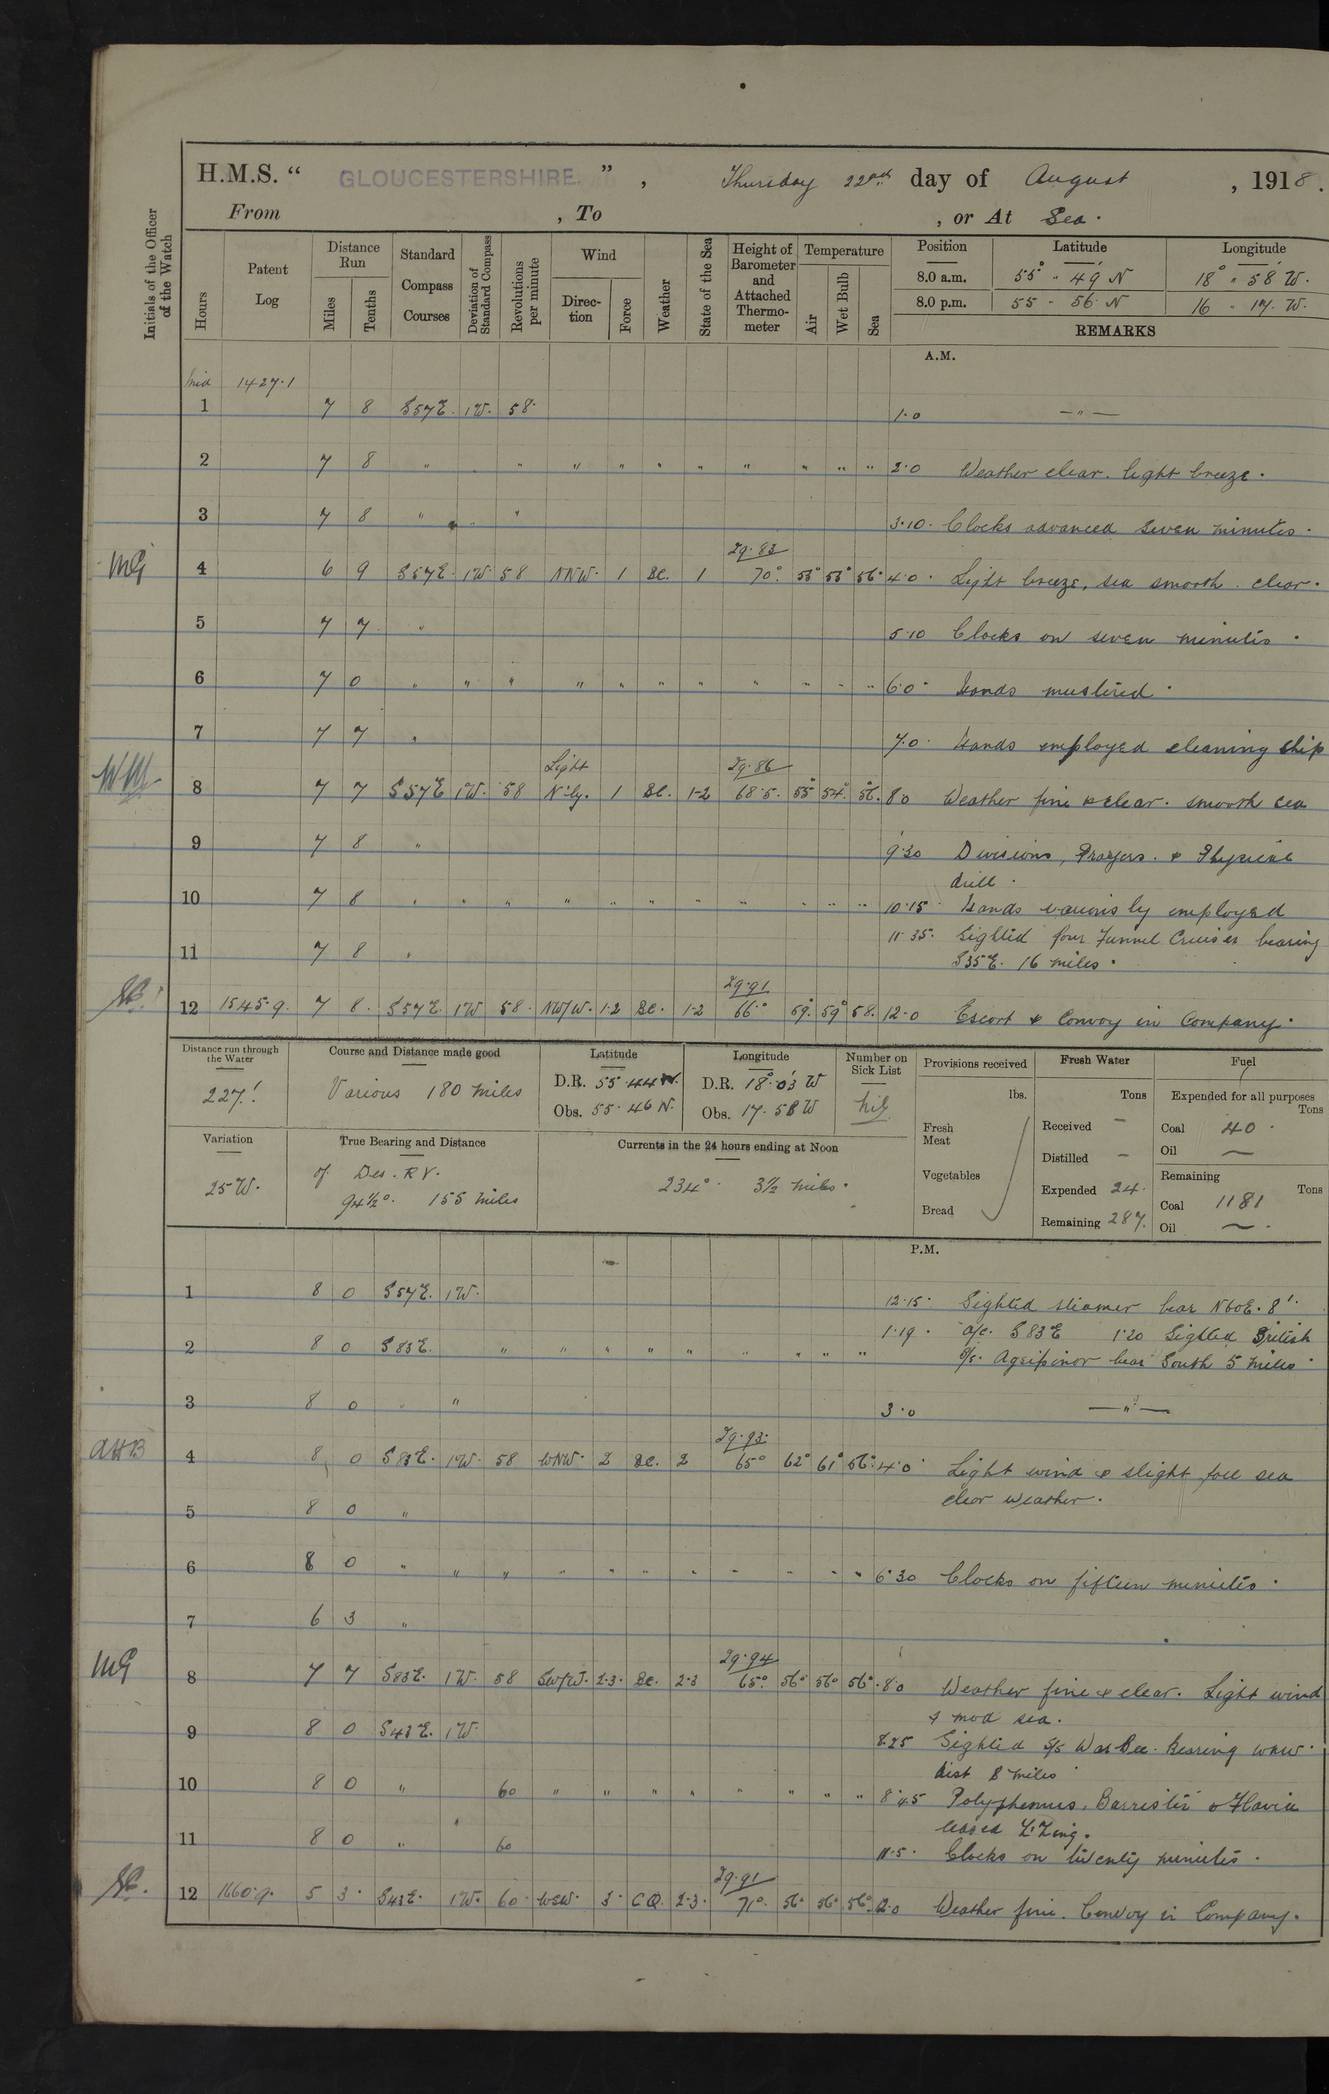 H.M.S. “ GLOUCESTERSHIRE. ” , Thursday 22nd day of August , 1918.
From , To , or At Sea.
Initials of the Officer of the Watch
Hours
Patent Log
Distance Run
Miles
Tenths
Standard Compass Courses
Deviation of Standard Compass
Revolutions per minute
Wind
Direction
Force
Weather
State of the Sea
Height of Barometer and Attached Thermometer
Temperature
Air
Wet Bulb
Sea
Position Latitude Longitude
8.0 a.m. 55° " 49 N 18° " 58' W.
8.0 p.m. 55 - 56 N 16 - 17. W.
REMARKS
A.M.
Mid 1427.1
1 7 8 S57E. 1W. 58. 1.0 — " —
2 7 8 " " " " " " " " " " " 2.0 Weather clear. light breeze.
3 7 8 " " 3.10. Clocks advanced seven minutes.
29.83
MG 4 6 9 S57E. 1W. 58 NNW. 1 BC. 1 70°. 55° 55° 56° 4.0. Light breeze, sea smooth. clear.
5 7 7 " 5.10 Clocks on seven minutes.
6 7 0 " " " " " " " " " " " 6.0. Hands mustered.
7 7 7 " 7.0. Hands employed cleaning ship
Light 29.86
8 7 7 S57E 1W. 58 N'ly. 1 BC. 1-2 68.5. 55° 54°. 56°. 8.0 Weather fine & clear. smooth sea
9 7 8 " 9.30 Divisions, Prayers. & Physical
drill.
10 7 8 " " " " " " " " " " " 10.15 Hands variously employed
11 7 8 " 11.35. Sighted four Funnel Cruiser bearing
S35E. 16 miles.
29.91
12 1545.9. 7 8. S57E. 1W 58. NW/W. 1-2 BC. 1-2 66.° 59°. 59° 58. 12.0 Escort & Convoy in Company.
Distance run through the Water
227.'
Course and Distance made good
Various 180 miles
Latitude
D.R. 55.44 N.
Obs. 55.46 N.
Longitude
D.R. 18°.03' W
Obs. 17.58 W
Number on Sick List
Nil
Provisions received
lbs.
Fresh Meat
Vegetables
Bread
Fresh Water
Tons
Received —
Distilled —
Expended 24.
Remaining 287.
Fuel
Expended for all purposes
Tons
Coal 40.
Oil —
Remaining
Tons
Coal 1181
Oil —.
Variation
25 W.
True Bearing and Distance
of Des. R V.
94½°. 155 miles
Currents in the 24 hours ending at Noon
234°. 3½ miles.
P.M.
1 8 0 S57E. 1W. 12.15. Sighted steamer bear N60E. 8'.
1.19. a/c. S83E 1.20 Sighted British
2 8 0 S83E. " " " " " " " " "
S/S. Agapinor bear South 5 miles.
3 8 0 " " 3.0 — " —
29.93.
AHB 4 8 0 S83E. 1W. 58 WNW. 2 BC. 2 65° 62° 61° 56° 4.0 Light wind & slight foll sea
clear weather.
5 8 0 "
6 8 0 " " " " " " " " " " " 6.30 Clocks on fifteen minutes.
7 6 3 "
29.94
MG 8 7 7 S83E. 1W. 58 SW/W. 2-3. BC. 2-3 65°. 56° 56° 56° 8.0 Weather fine & clear. Light wind
& mod sea.
9 8 0 S43E. 1W. 8.25 Sighted S/S War Dee. Bearing WNW.
dist 8 miles
10 8 0 " 60 " " " " " " " " 8.45 Polyphemus, Barrister & Flavia
ceased Z.Zing.
11 8 0 " 60 11.5. Clocks on twenty minutes.
29.91
12 1660.9. 5 3. S43E. 1W. 60. WSW. 3. C Q. 2-3. 71°. 56° 56° 56° 12.0 Weather fine. Convoy in Company.